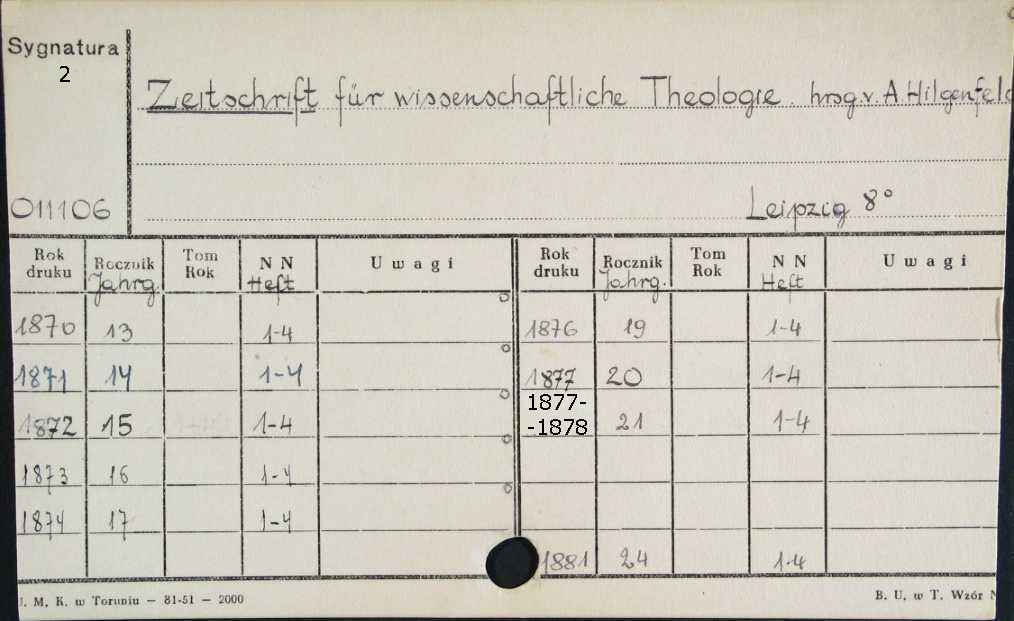 Sygnatura
2
Zeitschrift für wissenschaftliche Theologie. hrsg. v. A. Hilgenfeld
011106
Leipzig 8°
Rok druku Rocznik Jahrg. Tom Rok N N Heft Uwagi Rok druku Rocznik Jahrg. Tom Rok N N Heft Uwagi
1870 13 1-4 1876 19 1-4
1871 14 1-4 1877 20 1-4
1872 15 1-4 1877--1878 21 1-4
1873 16 1-4
1874 17 1-4
1881 24 1-4
J. M. K. w Toruniu — 81-51 — 2000 B. U. w T. Wzór N